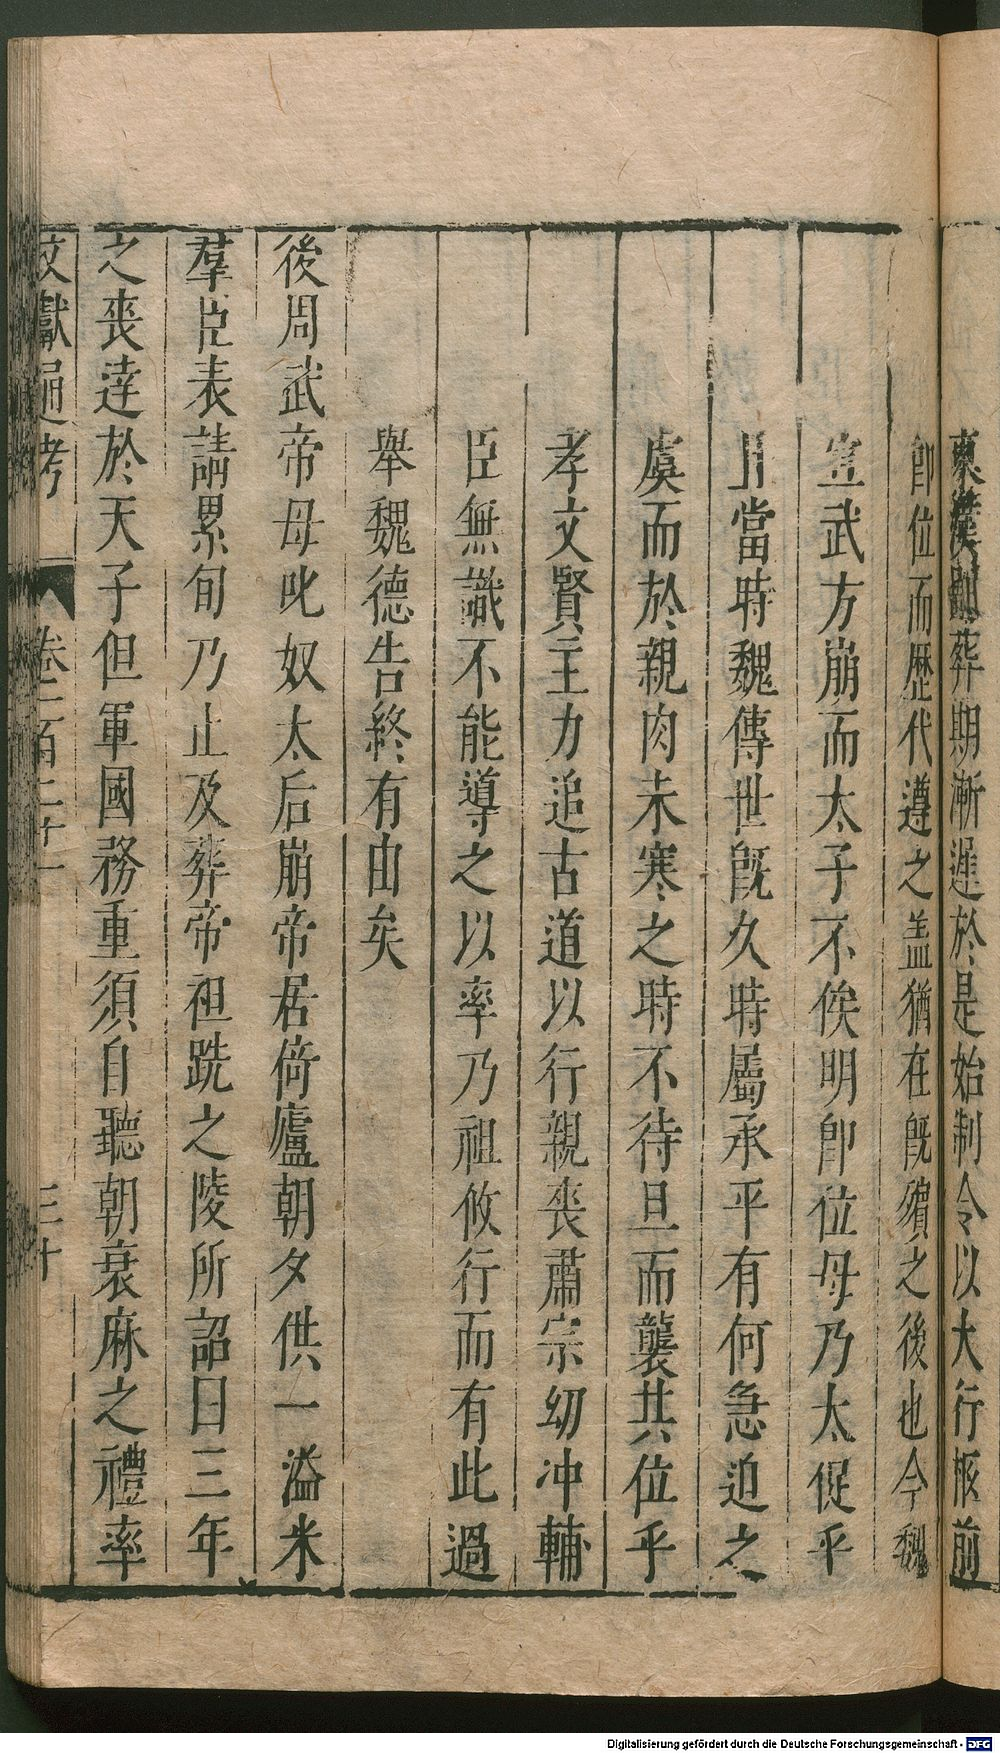 東漢則葬期漸遲於是始制令以大行柩前
卽位而歷代遵之盖猶在既殯之後也今魏
宣武方崩而太子不俟明卽位毋乃太促乎
且當時魏傳世既久時屬承平有何急迫之
虞而於親肉未寒之時不待旦而襲其位乎
孝文賢主力追古道以行親喪肅宗幼冲輔
臣無識不能導之以率乃祖攸行而有此過
舉魏德告終有由矣
後周武帝母叱奴太后崩帝居倚廬朝夕供一溢米
羣臣表請累旬乃止及葬帝袒跣之陵所詔曰三年
之喪逹於天子但軍國務重須自聽朝衰麻之禮率
文獻通考 卷一百二十一 三十
Digitalisierung gefördert durch die Deutsche Forschungsgemeinschaft - DFG